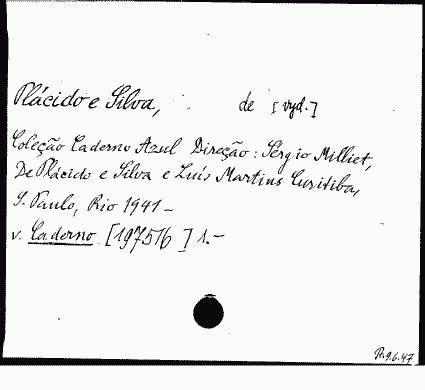 Plácido e Silva, de [vyd.]
Coleção Caderno Azul Direção: Sérgio Milliet,
De Plácido e Silva e Luís Martins Curitiba,
S. Paulo, Rio 1941 –
v. Caderno [197516] 1. –
R.9.6.47